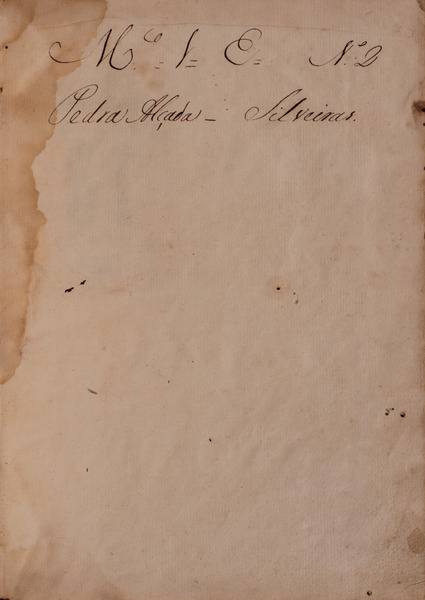 M.ço 1= E= N.o 2
Pedra Alçada — Silveiras.